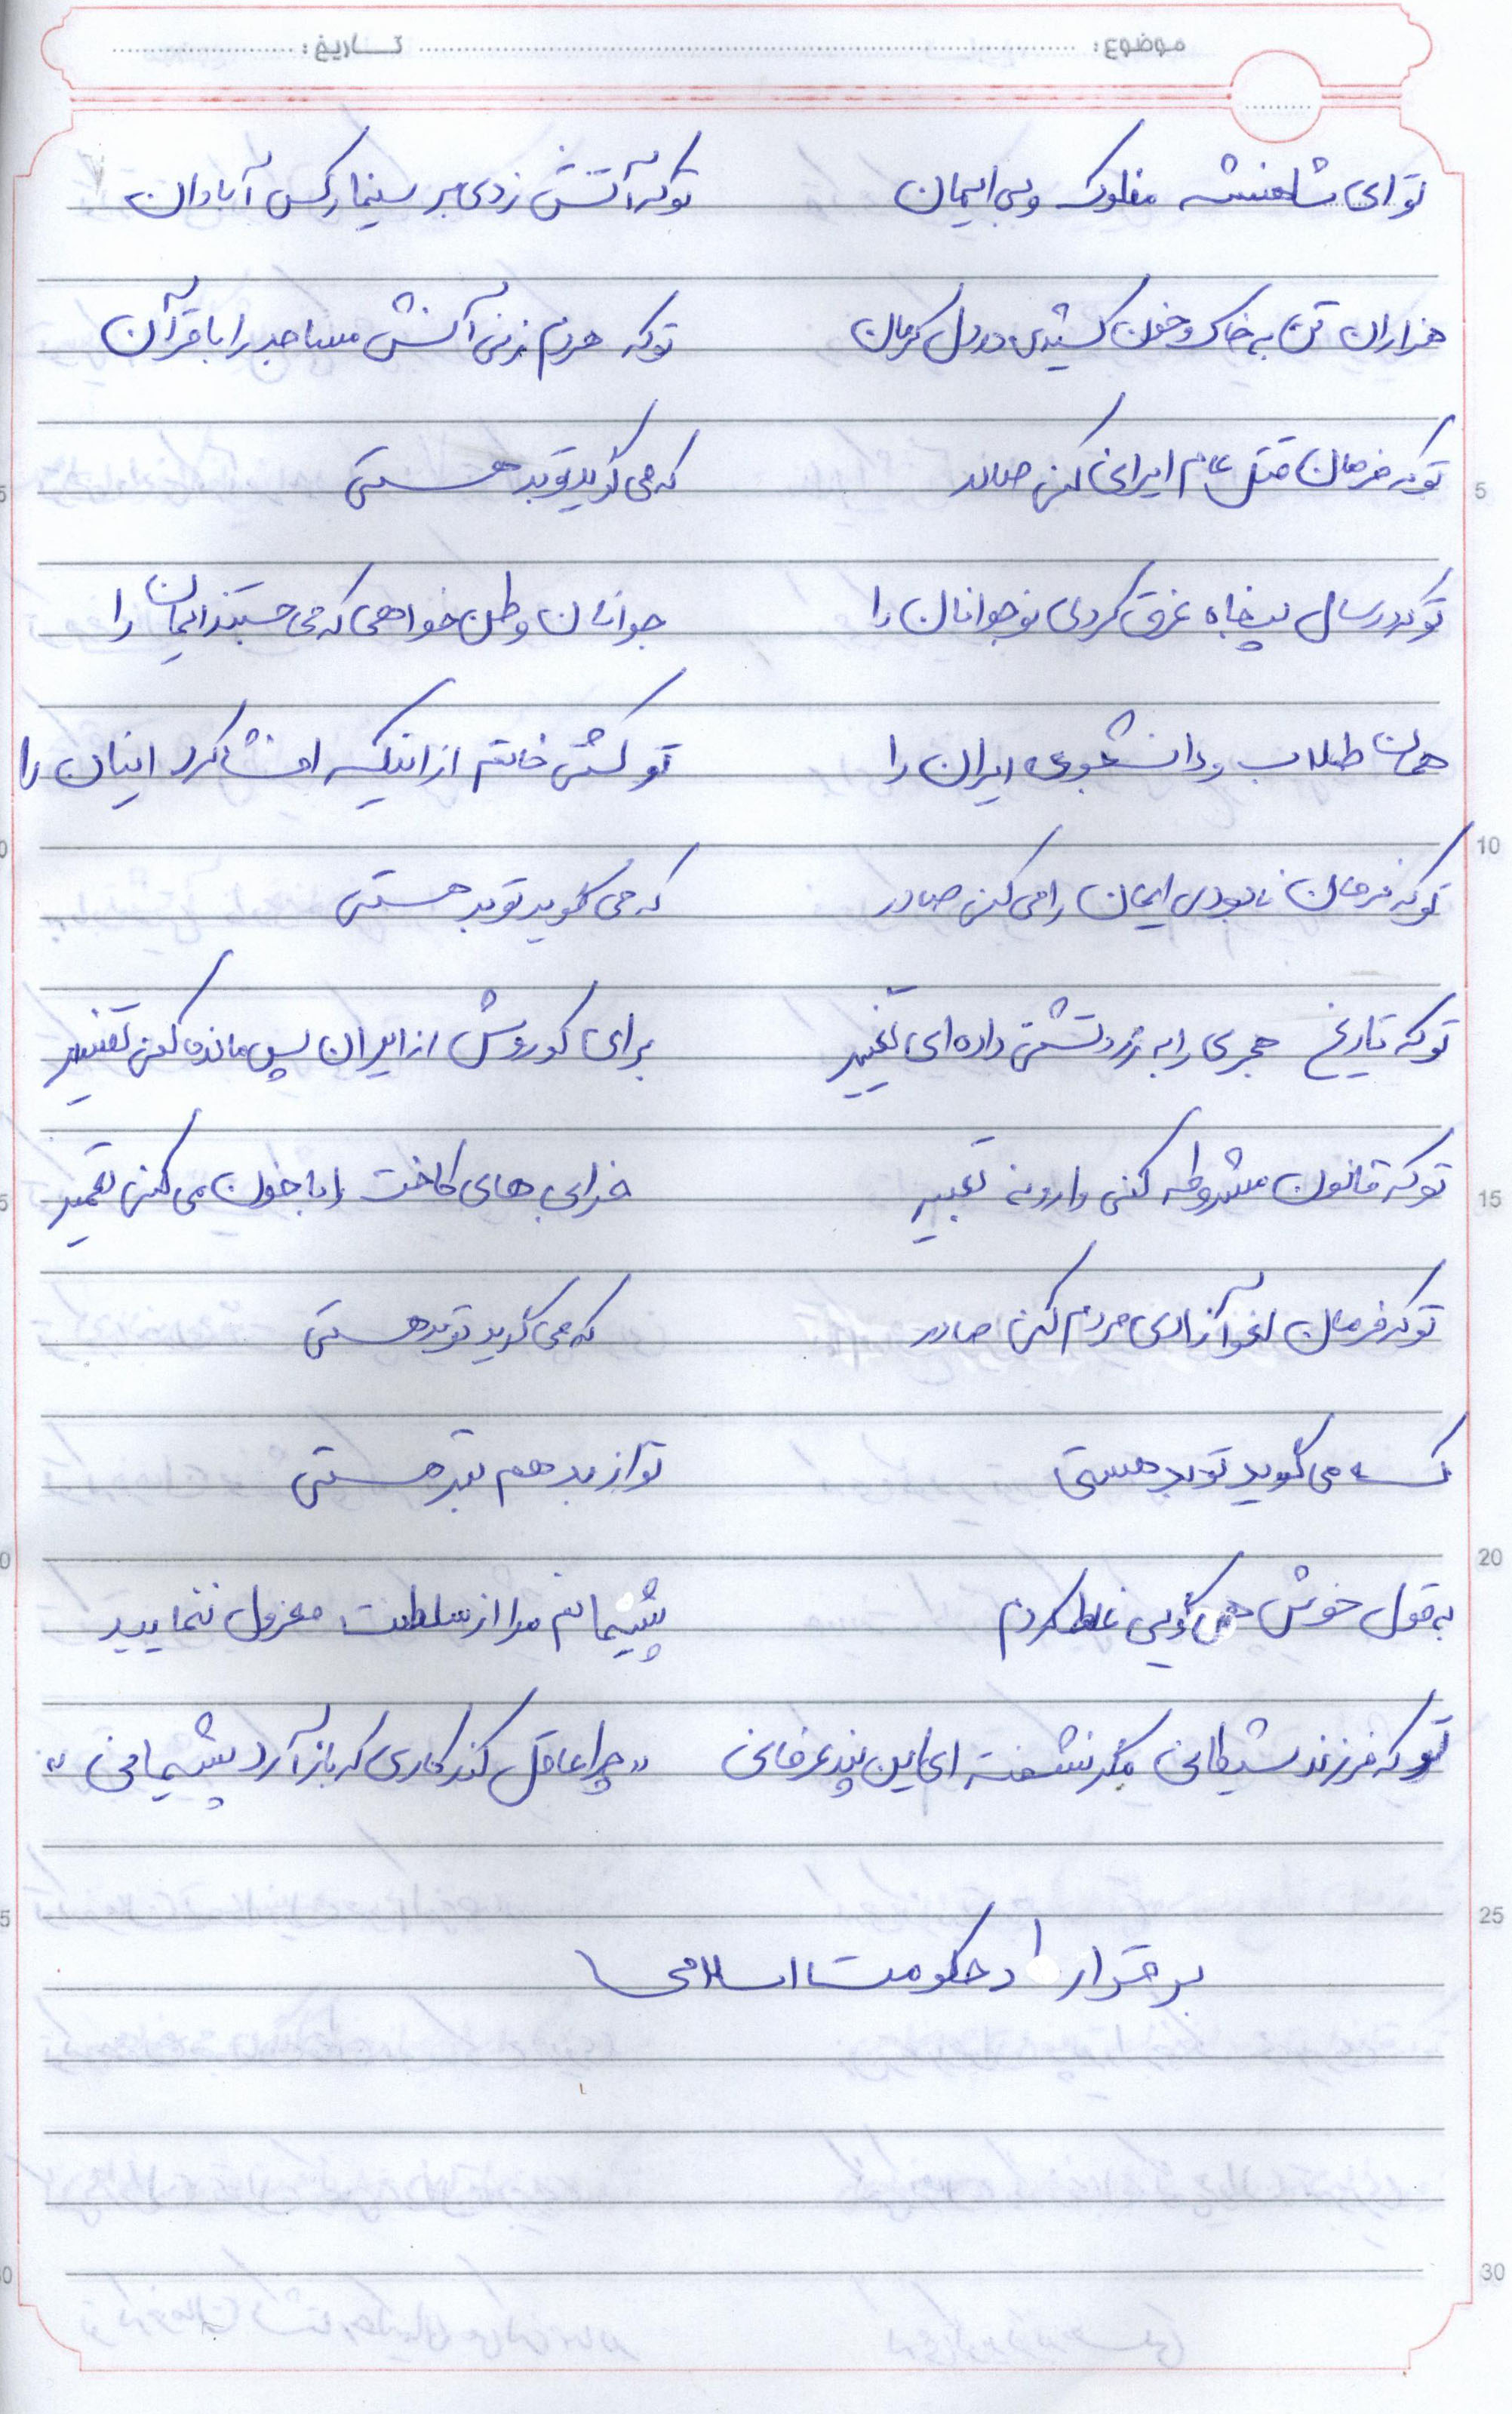 موضوع: تاریخ:
تو ای شاهنشه مفلوک و بی ایمان توکه آتش زدی بر سینما رکس آبادان
هزاران تن به خاک و خون کشیدی در دل کرمان توکه هردم زنی آتش مساجد را با قرآن
توکه فرمان قتل عام ایرانی کنی صادر که می گوید تو بد هستی
توکه در سال پنجاه غرق کردی نوجوانان را جوانان وطن خواهی که می جستند ایمان را
همان طلاب و دانشجوی ایران را تو کشتی خانم از اینکه افشا کرد اینان را
توکه فرمان نابودی ایمان را می کنی صادر که می گوید تو بد هستی
توکه تاریخ هجری را به زردتشتی داده ای تغییر برای کوروش از ایران پس مانده کنی تفسیر
توکه قانون مشروطه کنی وارونه تعبیر خرابی های کاخت را با خون می کنی تعمیر
توکه فرمان لغو آزادی مردم کنی صادر که می گوید تو بد هستی
که می گوید تو بد هستی تو از بد هم بتر هستی
به قول خویش می گویی غلط کردم پشیمانم مرا از سلطنت معزول ننمایید
تو که فرزند شیطانی مگر نشنفته ای این پند عرفانی "چرا عاقل کند کاری که باز آرد پشیمانی"
برقرار باد حکومت اسلامی
5
10
15
20
25
30